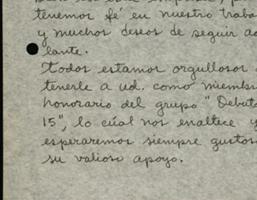 tenemos fé en nuestro traba
y muchos deseos de seguir ad
lante.
Todos estamos orgullosos
tenerle a ud. como miemb
honorario del grupo "Debut
15", lo cúal nos enaltece y
esperaremos siempre gustos
su valioso apoyo.